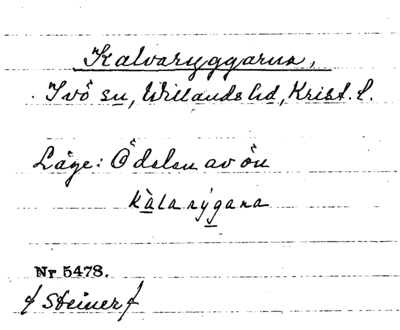 Kalvaryggarna,
Ivö sn, Willands hd, Krist. l.
Läge: Ö delen av ön
kàla rýgana
Nr 5478.
f Steiner f